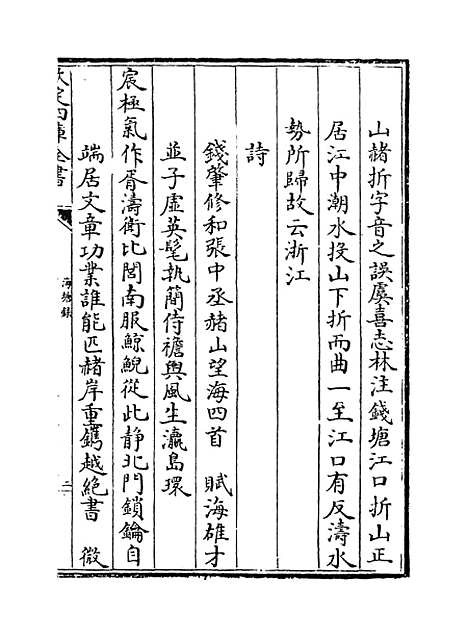 山赭折字音之誤虞喜志林注錢塘江口折山正
居江中潮水投山下折而曲一至江口有反濤水
勢所歸故云浙江
詩
錢肇修和張中丞赭山望海四首　賦海雄才
並子虛英髦執簡侍襜輿風生瀛島環
宸極氣作胥濤衛比閭南服鯨鯢從此靜北門鎖鑰自
端居文章功業誰能匹赭岸重鐫越絶書　微
欽定四庫全書
海塘錄
二